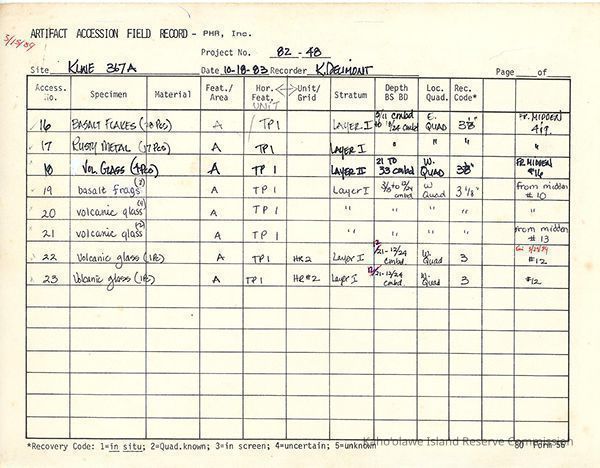 ARTIFACT ACCESSION FIELD RECORD - PHR, Inc.
5/15/89
Project No. 82 - 48
Site KLWE 367A Date 10-18-83 Recorder K. DELIMONT Page of
Access. No. Specimen Material Feat./ Area Hor. Feat. UNIT Unit/ Grid Stratum Depth BS BD Loc. Quad. Rec. Code*
16 BASALT FLAKES A TP1 LAYER I cmbd E. QUAD FR. MIDDEN
17 RUSTY METAL (17 PCS) A TP1 LAYER I " " " "
18 VOL. GLASS (4 PCS) A TP1 LAYER II 21 TO 33 cmbd W. QUAD FR MIDDEN #16
19 basalt frags (2) A TP1 Layer I cmbd W Quad 3 1/8" from midden #10
20 volcanic glass (4) A TP1 " " " " "
21 volcanic glass (2) A TP1 " " " " from midden #13
22 Volcanic glass (1 pc) A TP1 HR2 Layer I /21-12/24 cmbd. W. Quad 3 #12
23 Volcanic glass (1 pc) A TP1 HR#2 Layer I /21-12/24 cmbd W. Quad 3 #12
*Recovery Code: 1=in situ; 2=Quad.known; 3=in screen; 4=uncertain; 5=unknown 80 Form 56
Kaho'olawe Island Reserve Commission